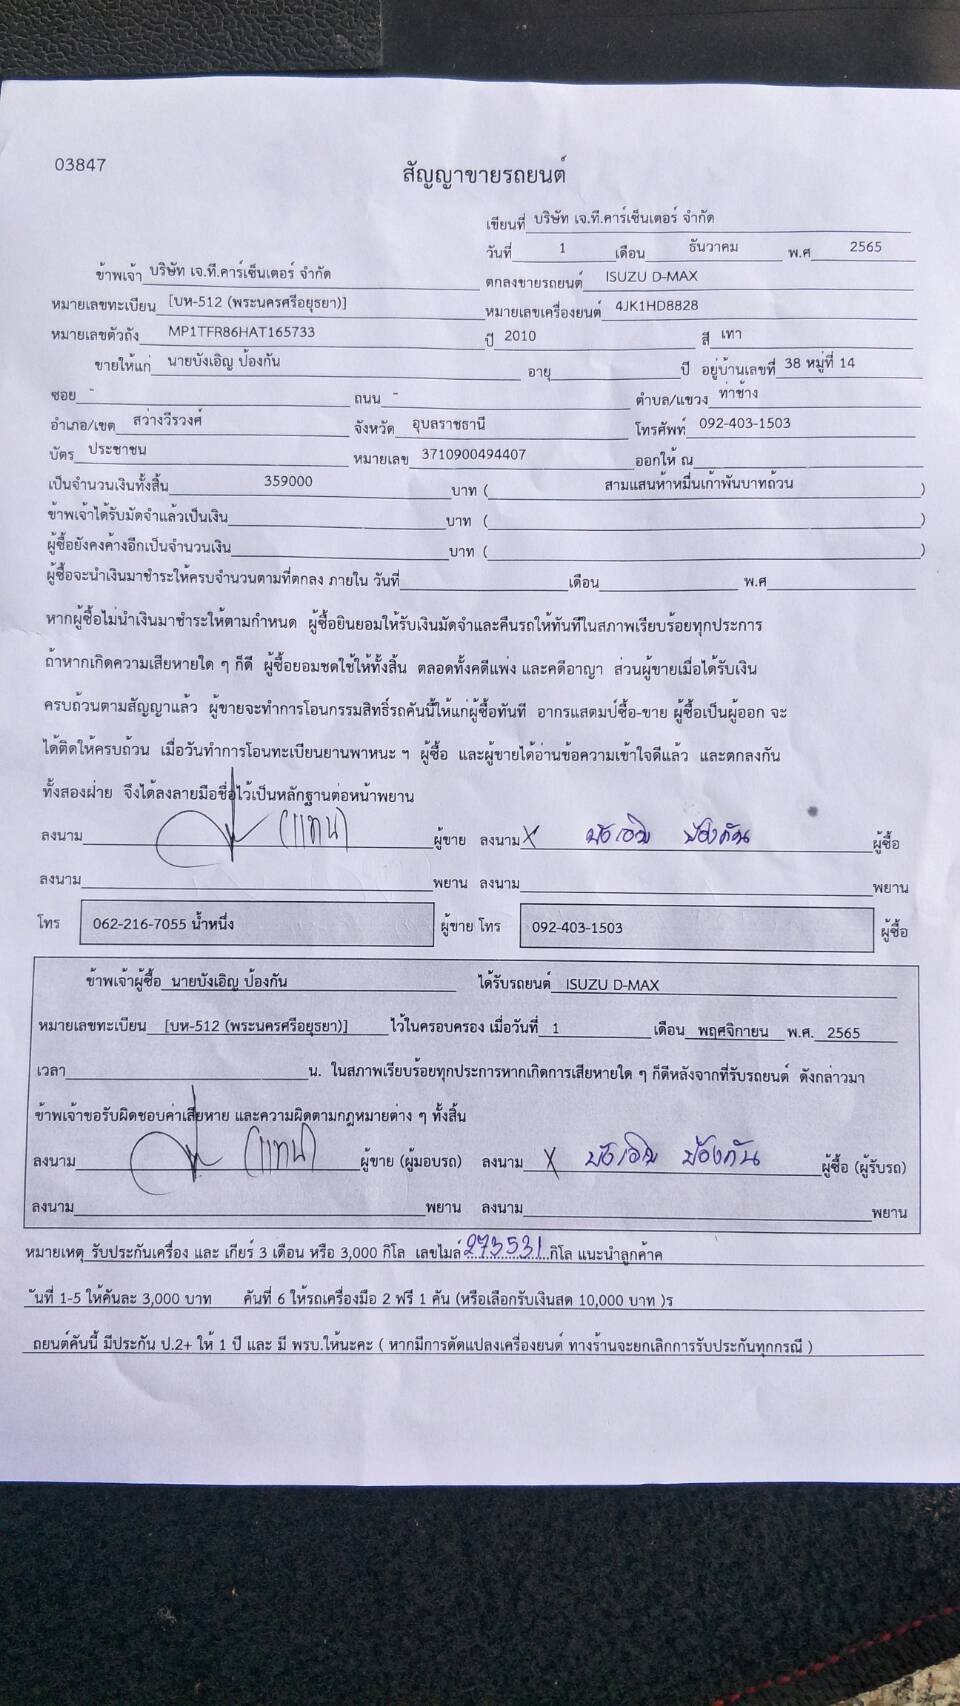 03847
สัญญาขายรถยนต์
เขียนที่ บริษัท เจ.ที.คาร์เซ็นเตอร์ จำกัด
วันที่ 1 เดือน ธันวาคม พ.ศ 2565
ข้าพเจ้า บริษัท เจ.ที.คาร์เซ็นเตอร์ จำกัด ตกลงขายรถยนต์ ISUZU D-MAX
หมายเลขทะเบียน [บห-512 (พระนครศรีอยุธยา)] หมายเลขเครื่องยนต์ 4JK1HD8828
หมายเลขตัวถัง MP1TFR86HAT165733 ปี 2010 สี เทา
ขายให้แก่ นายบังเอิญ ป้องกัน อายุ ปี อยู่บ้านเลขที่ 38 หมู่ที่ 14
ซอย - ถนน - ตำบล/แขวง ท่าช้าง
อำเภอ/เขต สว่างวีรวงศ์ จังหวัด อุบลราชธานี โทรศัพท์ 092-403-1503
บัตร ประชาชน หมายเลข 3710900494407 ออกให้ ณ
เป็นจำนวนเงินทั้งสิ้น 359000 บาท ( สามแสนห้าหมื่นเก้าพันบาทถ้วน )
ข้าพเจ้าได้รับมัดจำแล้วเป็นเงิน บาท ( )
ผู้ซื้อยังคงค้างอีกเป็นจำนวนเงิน บาท ( )
ผู้ซื้อจะนำเงินมาชำระให้ครบจำนวนตามที่ตกลง ภายใน วันที่ เดือน พ.ศ
หากผู้ซื้อไม่นำเงินมาชำระให้ตามกำหนด ผู้ซื้อยินยอมให้รับเงินมัดจำและคืนรถให้ทันทีในสภาพเรียบร้อยทุกประการ
ถ้าหากเกิดความเสียหายใด ๆ ก็ดี ผู้ซื้อยอมชดใช้ให้ทั้งสิ้น ตลอดทั้งคดีแพ่ง และคดีอาญา ส่วนผู้ขายเมื่อได้รับเงิน
ครบถ้วนตามสัญญาแล้ว ผู้ขายจะทำการโอนกรรมสิทธิ์รถคันนี้ให้แก่ผู้ซื้อทันที อากรแสตมป์ซื้อ-ขาย ผู้ซื้อเป็นผู้ออก จะ
ได้ติดให้ครบถ้วน เมื่อวันทำการโอนทะเบียนยานพาหนะ ฯ ผู้ซื้อ และผู้ขายได้อ่านข้อความเข้าใจดีแล้ว และตกลงกัน
ทั้งสองฝ่าย จึงได้ลงลายมือชื่อไว้เป็นหลักฐานต่อหน้าพยาน
ลงนาม (แทน) ผู้ขาย ลงนาม X บังเอิญ ป้องกัน ผู้ซื้อ
ลงนาม พยาน ลงนาม พยาน
โทร 062-216-7055 น้ำหนึ่ง ผู้ขาย โทร 092-403-1503 ผู้ซื้อ
ข้าพเจ้าผู้ซื้อ นายบังเอิญ ป้องกัน ได้รับรถยนต์ ISUZU D-MAX
หมายเลขทะเบียน [บห-512 (พระนครศรีอยุธยา)] ไว้ในครอบครอง เมื่อวันที่ 1 เดือน พฤศจิกายน พ.ศ. 2565
เวลา น. ในสภาพเรียบร้อยทุกประการหากเกิดการเสียหายใด ๆ ก็ดีหลังจากที่รับรถยนต์ ดังกล่าวมา
ข้าพเจ้าขอรับผิดชอบค่าเสียหาย และความผิดตามกฎหมายต่าง ๆ ทั้งสิ้น
ลงนาม (แทน) ผู้ขาย (ผู้มอบรถ) ลงนาม X บังเอิญ ป้องกัน ผู้ซื้อ (ผู้รับรถ)
ลงนาม พยาน ลงนาม พยาน
หมายเหตุ รับประกันเครื่อง และ เกียร์ 3 เดือน หรือ 3,000 กิโล เลขไมล์ 273531 กิโล แนะนำลูกค้าค
ันที่ 1-5 ให้คันละ 3,000 บาท คันที่ 6 ให้รถเครื่องมือ 2 ฟรี 1 คัน (หรือเลือกรับเงินสด 10,000 บาท )ร
ถยนต์คันนี้ มีประกัน ป.2+ ให้ 1 ปี และ มี พรบ.ให้นะคะ ( หากมีการดัดแปลงเครื่องยนต์ ทางร้านจะยกเลิกการรับประกันทุกกรณี )